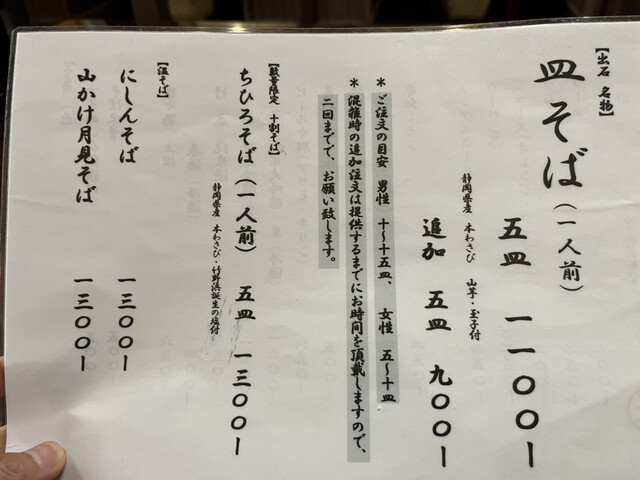 【出石 名物】
皿そば(一人前)
五皿 一一〇〇ー
静岡県産 本わさび 山芋・玉子付
追加 五皿 九〇〇ー
* ご注文の目安 男性 十〜十五皿、 女性 五〜十皿
* 混雑時の追加注文は提供するまでにお時間を頂戴しますので、
二回までで、お願い致します。
【数量限定 十割そば】
ちひろそば(一人前) 五皿 一三〇〇ー
静岡県産 本わさび・竹野浜誕生の塩付
【温そば】
にしんそば 一三〇〇ー
山かけ月見そば 一三〇〇ー